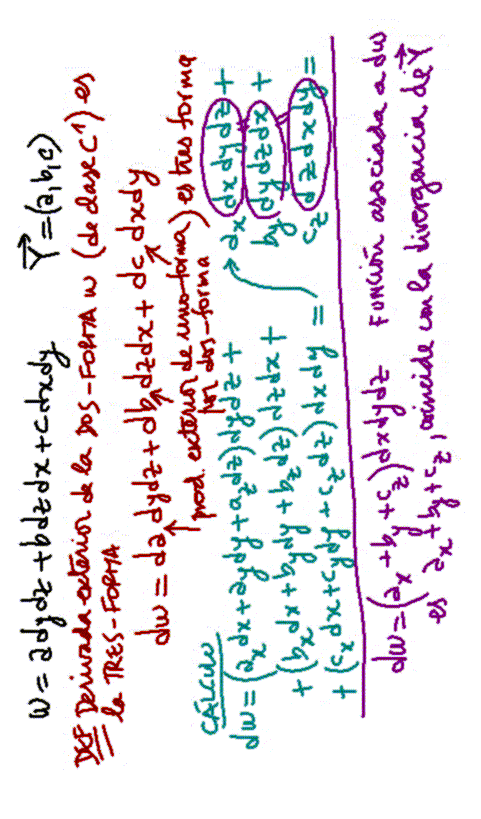 w = a dy dz + b dz dx + c dx dy    Y⃗ = (a, b, c)
DEF Derivada exterior de la DOS-FORMA w (de clase C¹) es
la TRES-FORMA
dw = da dy dz + db dz dx + dc dx dy
prod. exterior de uno-forma) es tres forma
por dos-forma
CÁLCULO
dw = (a_x dx + a_y dy + a_z dz) dy dz +    a_x dx dy dz +
+ (b_x dx + b_y dy + b_z dz) dz dx +    b_y dy dz dx +
+ (c_x dx + c_y dy + c_z dz) dx dy =    c_z dz dx dy =
dw = (a_x + b_y + c_z) dx dy dz    FUNCIÓN asociada a dw
es a_x + b_y + c_z, coincide con la divergencia de Y⃗